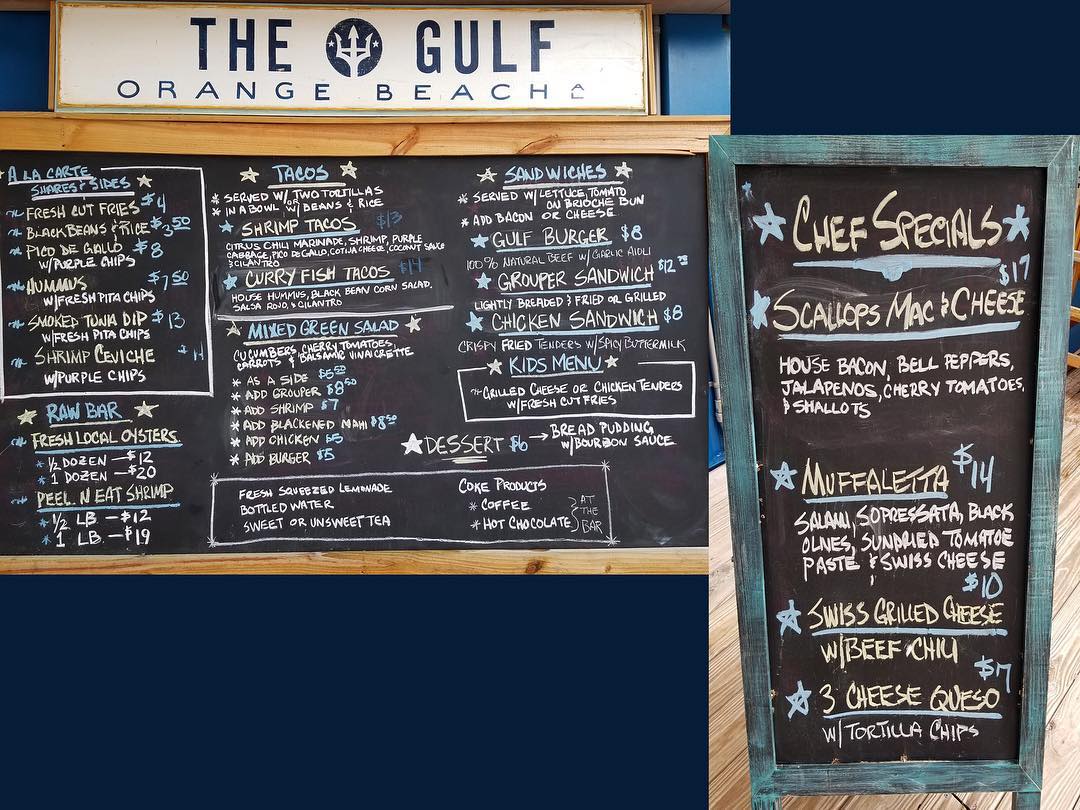 THE GULF
ORANGE BEACH
A LA CARTE
SHARES & SIDES
FRESH CUT FRIES $4
BLACK BEANS & RICE $3.50
PICO DE GALLO $8
W/PURPLE CHIPS
HUMMUS $7.50
W/FRESH PITA CHIPS
SMOKED TUNA DIP $13
W/FRESH PITA CHIPS
SHRIMP CEVICHE
W/PURPLE CHIPS
RAW BAR
FRESH LOCAL OYSTERS
* 1/2 DOZEN — $12
* 1 DOZEN — $20
PEEL N EAT SHRIMP
* 1/2 LB — $12
* 1 LB — $19
TACOS
* SERVED W/ TWO TORTILLAS
OR
* IN A BOWL W/ BEANS & RICE
SHRIMP TACOS $13
CITRUS CHILI MARINADE, SHRIMP, PURPLE
CABBAGE, PICO DE GALLO, COTIJA CHEESE, COCONUT SAUCE
& CILANTRO
CURRY FISH TACOS $14
HOUSE HUMMUS, BLACK BEAN CORN SALAD,
SALSA ROJO, & CILANTRO
MIXED GREEN SALAD
CUCUMBERS, CHERRY TOMATOES,
CARROTS & BALSAMIC VINAIGRETTE
* AS A SIDE $5.50
* ADD GROUPER $8.50
* ADD SHRIMP $7
* ADD BLACKENED MAHI $8.50
* ADD CHICKEN $5
* ADD BURGER $5
SANDWICHES
* SERVED W/ LETTUCE, TOMATO
ON BRIOCHE BUN
* ADD BACON OR CHEESE
GULF BURGER $8
100% NATURAL BEEF W/ GARLIC AIOLI
GROUPER SANDWICH
LIGHTLY BREADED & FRIED OR GRILLED
CHICKEN SANDWICH $8
CRISPY FRIED TENDERS W/ SPICY BUTTERMILK
KIDS MENU
GRILLED CHEESE OR CHICKEN TENDERS
W/FRESH CUT FRIES
DESSERT $6 → BREAD PUDDING
W/BOURBON SAUCE
FRESH SQUEEZED LEMONADE
BOTTLED WATER
SWEET OR UNSWEET TEA
COKE PRODUCTS
* COFFEE
* HOT CHOCOLATE
AT
THE
BAR
CHEF SPECIALS
$17
SCALLOPS MAC & CHEESE
HOUSE BACON, BELL PEPPERS,
JALAPENOS, CHERRY TOMATOES,
& SHALLOTS
MUFFALETTA $14
SALAMI, SOPRESSATA, BLACK
OLIVES, SUNDRIED TOMATOE
PASTE & SWISS CHEESE
$10
SWISS GRILLED CHEESE
W/BEEF CHILI
3 CHEESE QUESO
W/TORTILLA CHIPS